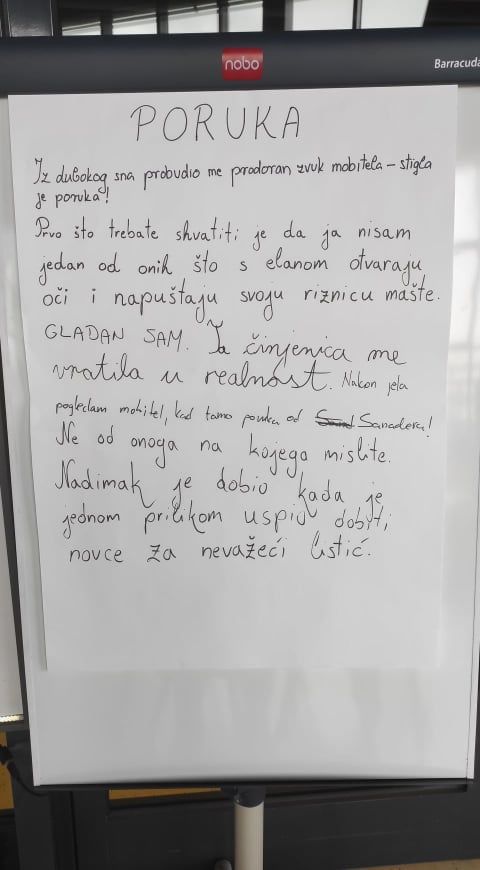 nobo
Barracuda
PORUKA
Iz dubokog sna probudio me prodoran zvuk mobitela – stigla
je poruka!
Prvo što trebate shvatiti je da ja nisam
jedan od onih što s elanom otvaraju
oči i napuštaju svoju riznicu mašte.
GLADAN SAM. Ta činjenica me
vratila u realnost. Nakon jela
pogledam mobitel, kad tamo poruka od Sanadera!
Ne od onoga na kojega mislite.
Nadimak je dobio kada je
jednom prilikom uspio dobiti
novce za nevažeći listić.